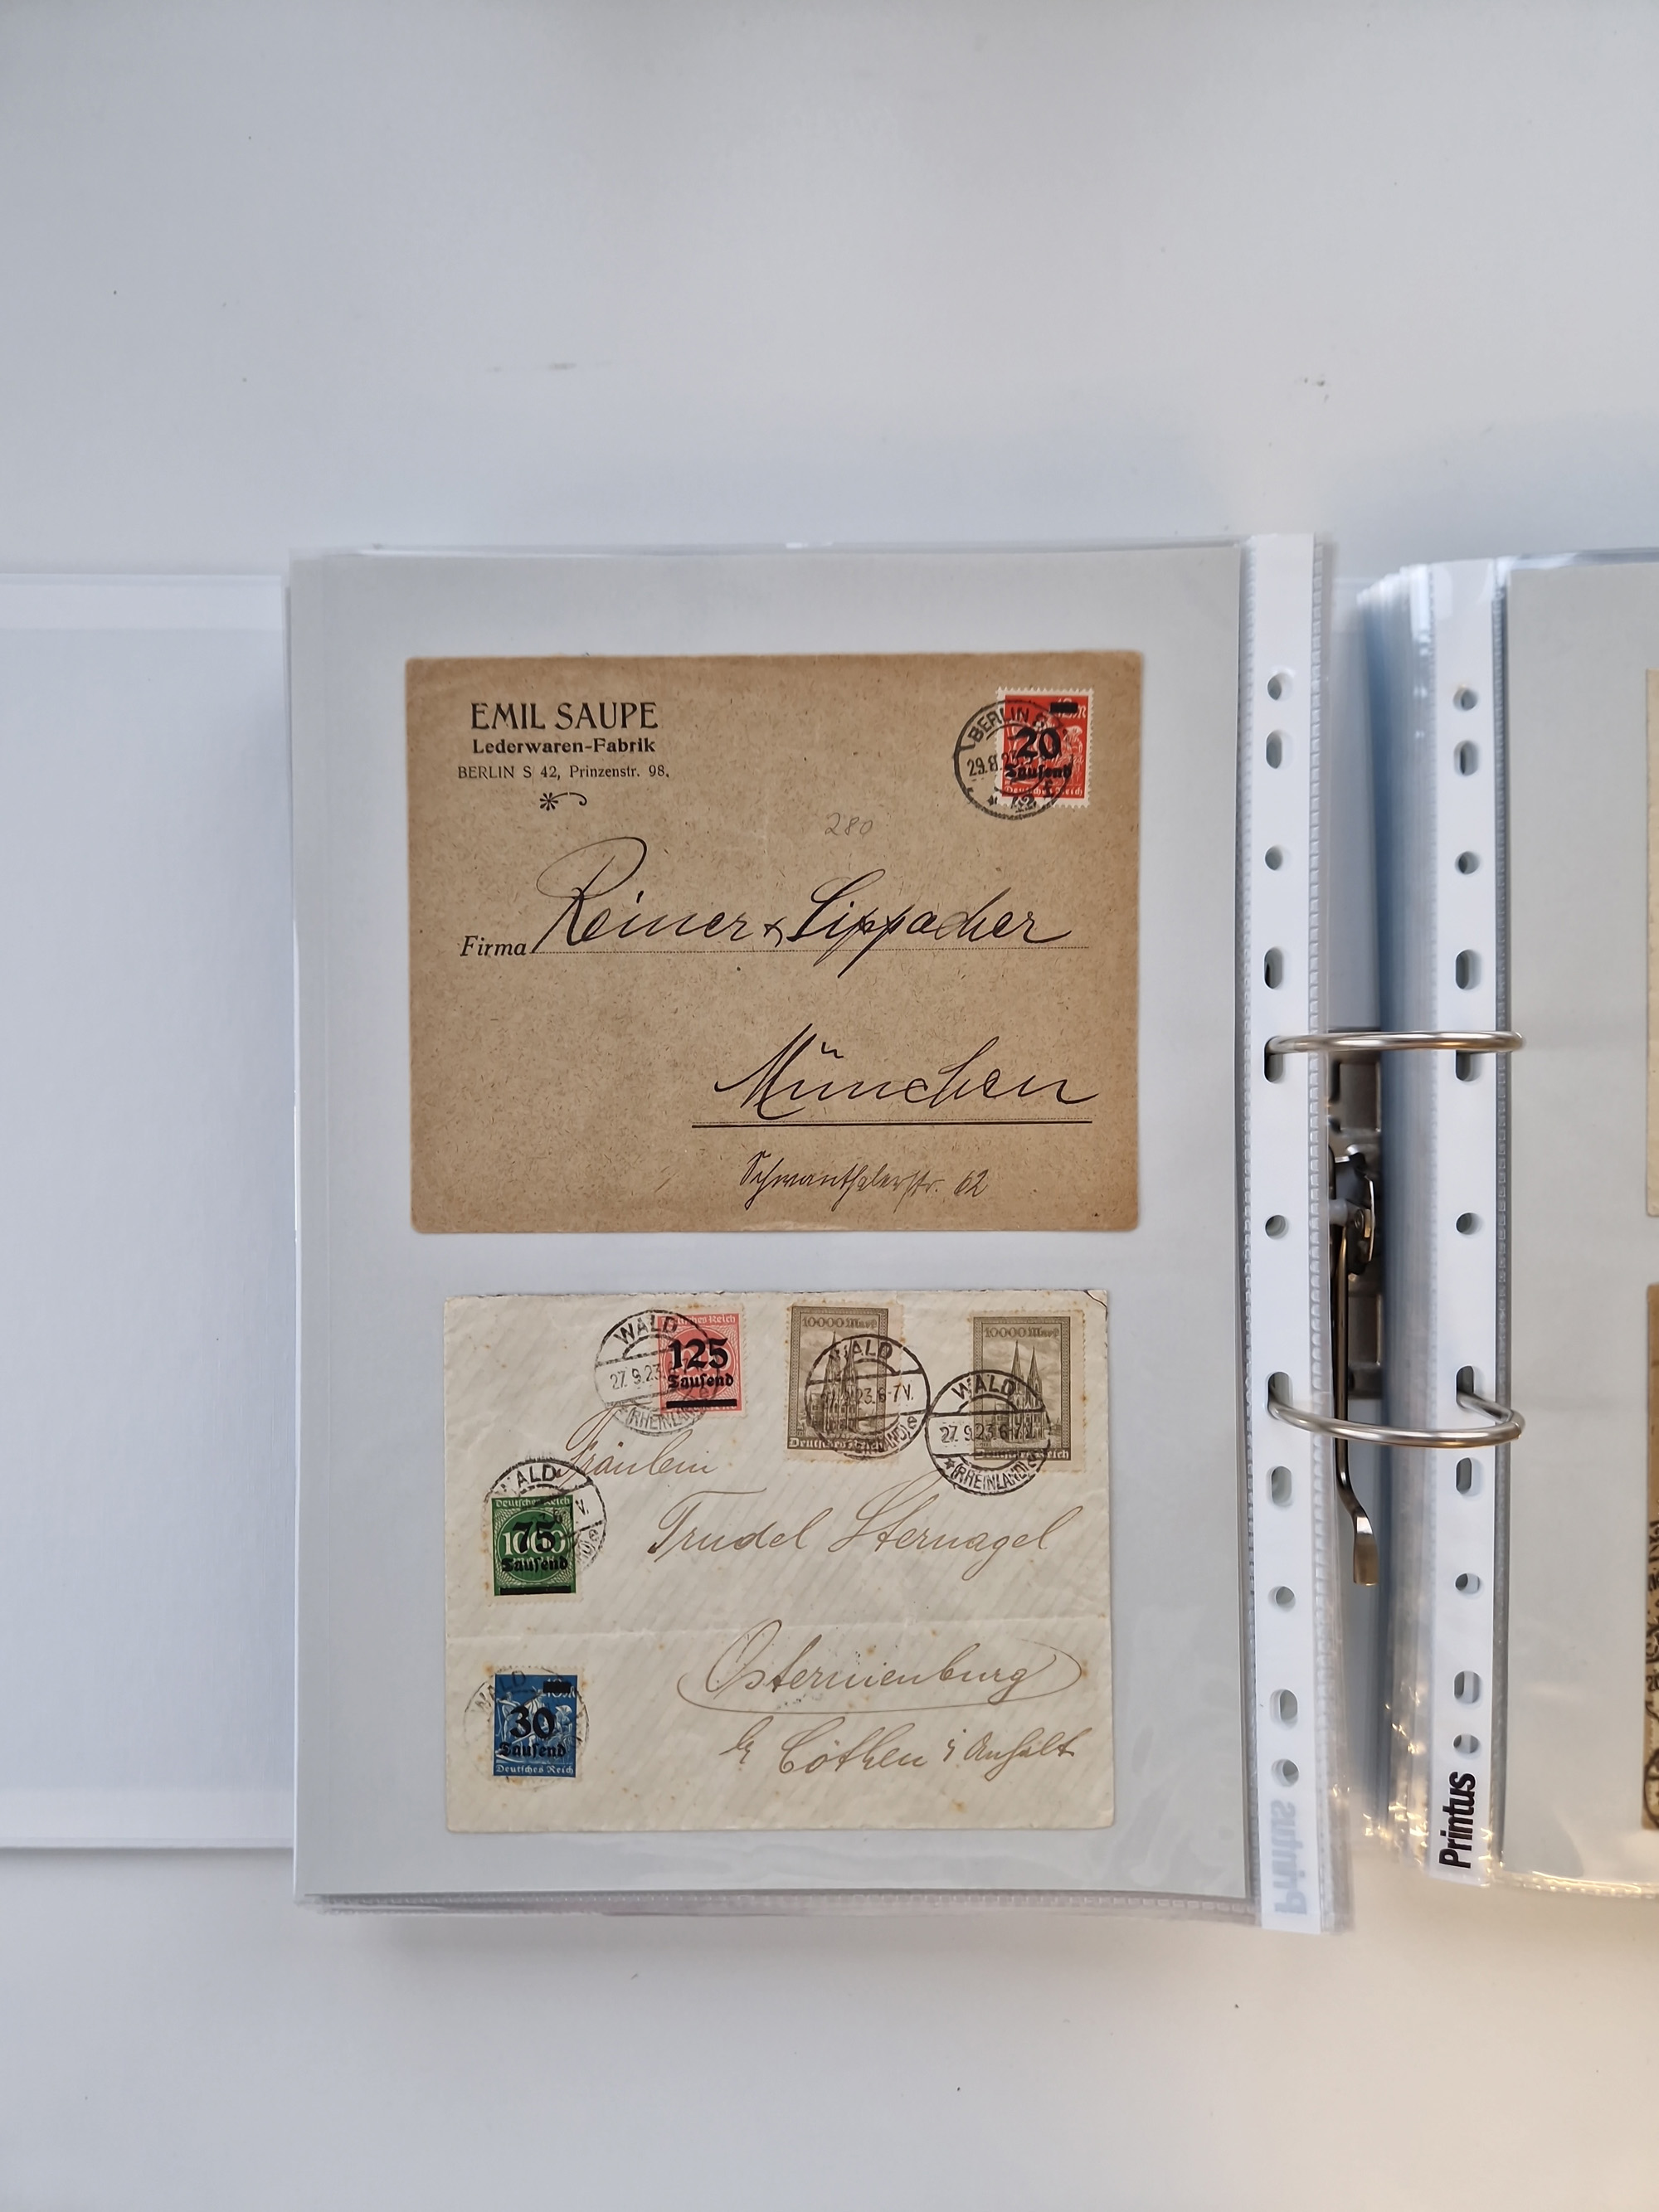 EMIL SAUPE
Lederwaren-Fabrik
BERLIN S 42, Prinzenstr. 98.
BERLIN
29.8.23
20
Tausend
Deutsches Reich
280
Firma Reiner & Lippacher
München
Schwanthalerstr. 62
WALD
27.9.23.
(RHEINLAND)
Deutsches Reich
125
Tausend
10000 Mark
Deutsches Reich
WALD
23.6-7V.
10000 Mark
Deutsches Reich
WALD
27.9.23.6-7V.
(RHEINLAND)
Fräulein
Trudel Sternagel
Osternienburg
b/ Cöthen i/ Anhalt
WALD
Deutsches Reich
1000
75
Tausend
WALD
30
Tausend
Deutsches Reich
Printus
Printus